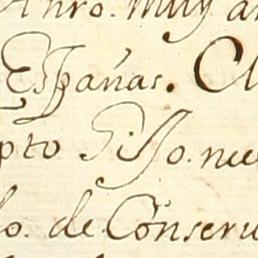 Nrõ. Muy a
Españas. Cl
pto S. Jo. nue
lo. de Cõnseru